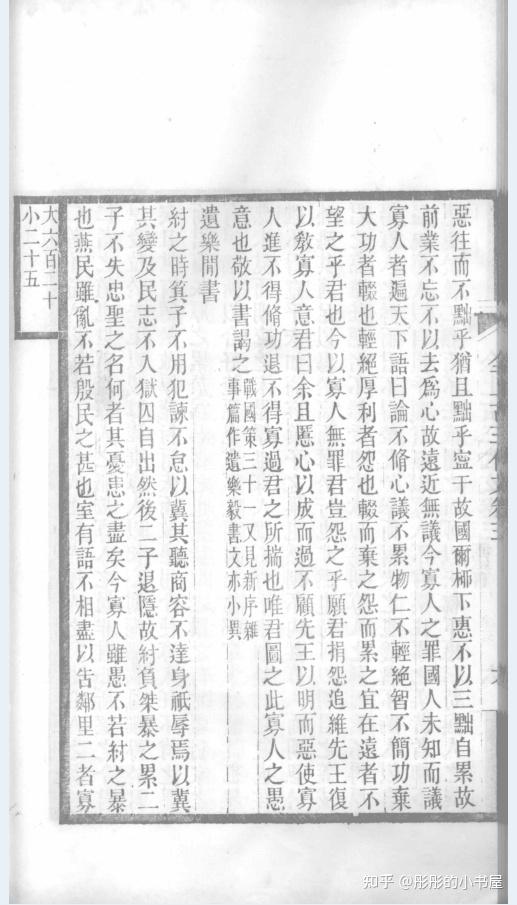 全上古三代文卷三
惡往而不黜乎猶且黜乎寧于故國爾柳下惠不以三黜自累故
前業不忘不以去爲心故遠近無議今寡人之罪國人未知而議
寡人者遍天下語曰論不脩心議不累物仁不輕絕智不簡功棄
大功者輟也輕絕厚利者怨也輟而棄之怨而累之宜在遠者不
望之乎君也今以寡人無罪君豈怨之乎願君捐怨追維先王復
以敎寡人意君曰余且慝心以成而過不顧先王以明而惡使寡
人進不得脩功退不得寡過君之所揣也唯君圖之此寡人之愚
意也敬以書謁之戰國策三十一又見新序雜
事篇作遺樂毅書文亦小異
遺樂閒書
紂之時箕子不用犯諫不怠以冀其聽商容不達身祇辱焉以冀
其變及民志不入獄囚自出然後二子退隱故紂負桀暴之累二
子不失忠聖之名何者其憂患之盡矣今寡人雖愚不若紂之暴
也燕民雖亂不若殷民之甚也室有語不相盡以告鄰里二者寡
大六百二十
小二十五
知乎 @彤彤的小书屋